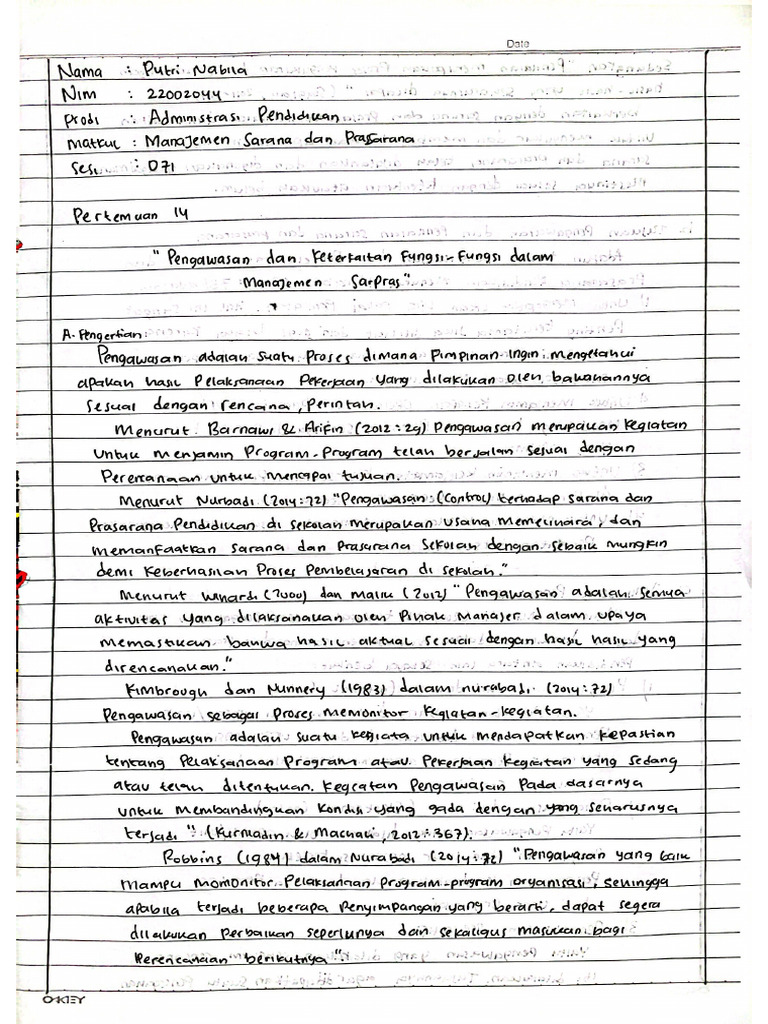 Date
Nama : Putri Nabila
Nim : 22002044
Prodi : Administrasi Pendidikan
Matkul : Manajemen Sarana dan Prasarana
Sesi : 071
Pertemuan 14
"Pengawasan dan Keterkaitan Fungsi-Fungsi dalam
Manajemen Sarpras"
A. Pengertian:
Pengawasan adalah suatu Proses dimana Pimpinan ingin mengetahui
apakah hasil Pelaksanaan Pekerjaan yang dilakukan oleh bawahannya
sesuai dengan rencana, perintah.
Menurut Barnawi & Arifin (2012:29) Pengawasan merupakan kegiatan
untuk menjamin Program-Program telah berjalan sesuai dengan
Perencanaan untuk mencapai tujuan.
Menurut Nurbadi (2014:72) "Pengawasan (Control) terhadap sarana dan
Prasarana Pendidikan di sekolah merupakan usaha memelihara, dan
memanfaatkan sarana dan Prasarana Sekolah dengan sebaik mungkin
demi keberhasilan Proses Pembelajaran di sekolah."
Menurut Winardi (2000) dan Malik (2012) "Pengawasan adalah semua
aktivitas yang dilaksanakan oleh Pihak Manajer dalam upaya
memastikan bahwa hasil aktual sesuai dengan hasil hasil yang
direncanakan."
Kimbrough dan Nunnery (1983) dalam nurabadi (2014:72)
Pengawasan sebagai Proses memonitor kegiatan-kegiatan.
Pengawasan adalah suatu kegiata untuk mendapatkan kepastian
tentang Pelaksanaan Program atau Pekerjaan kegiatan yang sedang
atau telah ditentukan. Kegiatan Pengawasan Pada dasarnya
untuk membandingkan kondisi yang gada dengan yang seharusnya
terjadi" (Kurmadin & Machali, 2012:367).
Robbins (1984) dalam Nurabadi (2014:72) "Pengawasan yang baik
mampu momonitor Pelaksanaan Program-program organisasi, sehingga
apabila terjadi beberapa Penyimpangan yang berarti, dapat segera
dilakukan Perbaikan seperlunya dan sekaligus masukan bagi
Perencanaan berikutnya".
OKEY